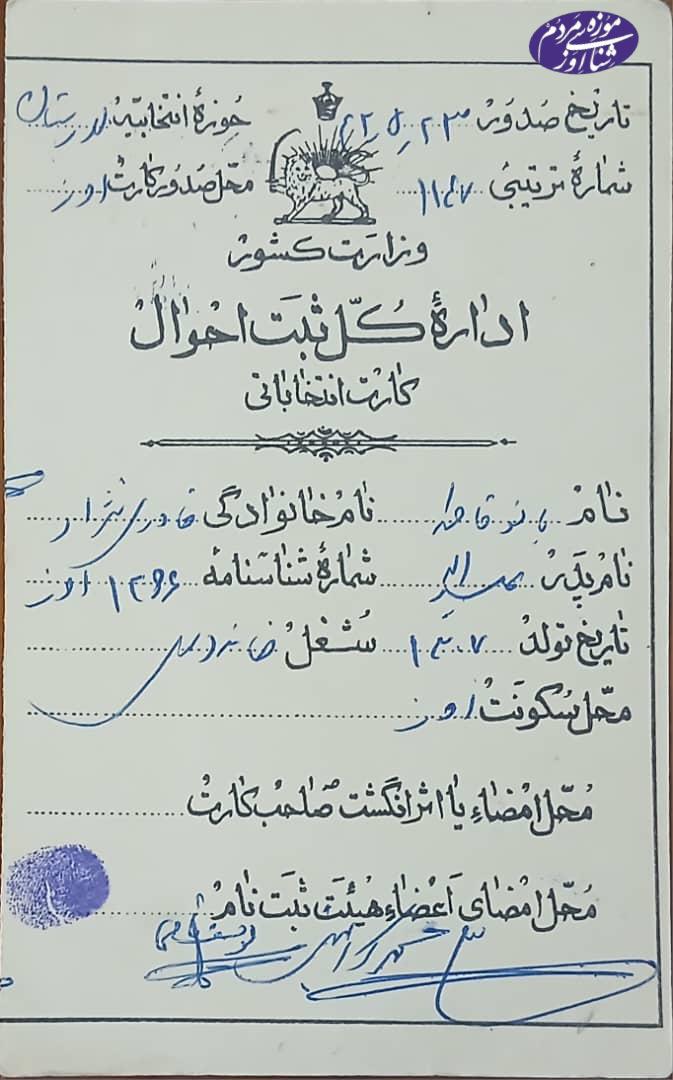 موزه‌ی مردم شناسی اوز
تاریخ صدور ۲۳ر۵ر۴۲ حوزهٔ انتخابیه لارستان
شمارهٔ ترتیبی ۱۱۴۷ محل صدور کارت اوز
وزارت کشور
ادارهٔ کل ثبت احوال
کارت انتخاباتی
نام بانو فاطمه نام خانوادگی قادری نژاد
نام پدر عبداله شمارهٔ شناسنامه ۱۳۹۶ اوز
تاریخ تولد ۱۳۰۷ شغل خانه‌دار
محل سکونت اوز
محل امضاء یا اثر انگشت صاحب کارت
محل امضای اعضاء هیئت ثبت نام